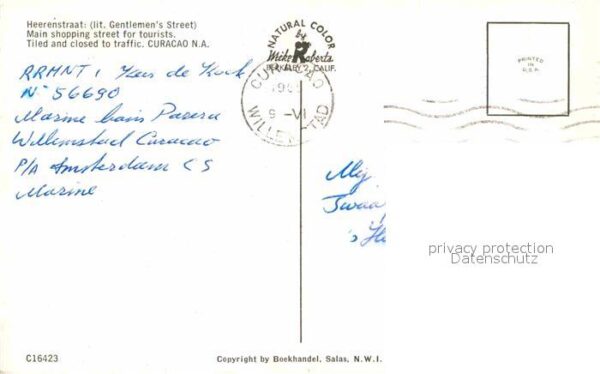 Heerenstraat: (lit. Gentlemen's Street)
Main shopping street for tourists.
Tiled and closed to traffic. CURACAO N.A.
NATURAL COLOR
by
Mike Roberts
BERKELEY 2, CALIF.
CURACAO
9 -VI
WILLEMSTAD
PRINTED
IN
U.S.A.
RRMNT 1 de
N° 56690
Marine
Willemstad Curacao
P/A Amsterdam CS
Marine
privacy protection
Datenschutz
C16423
Copyright by Boekhandel, Salas, N.W.I.